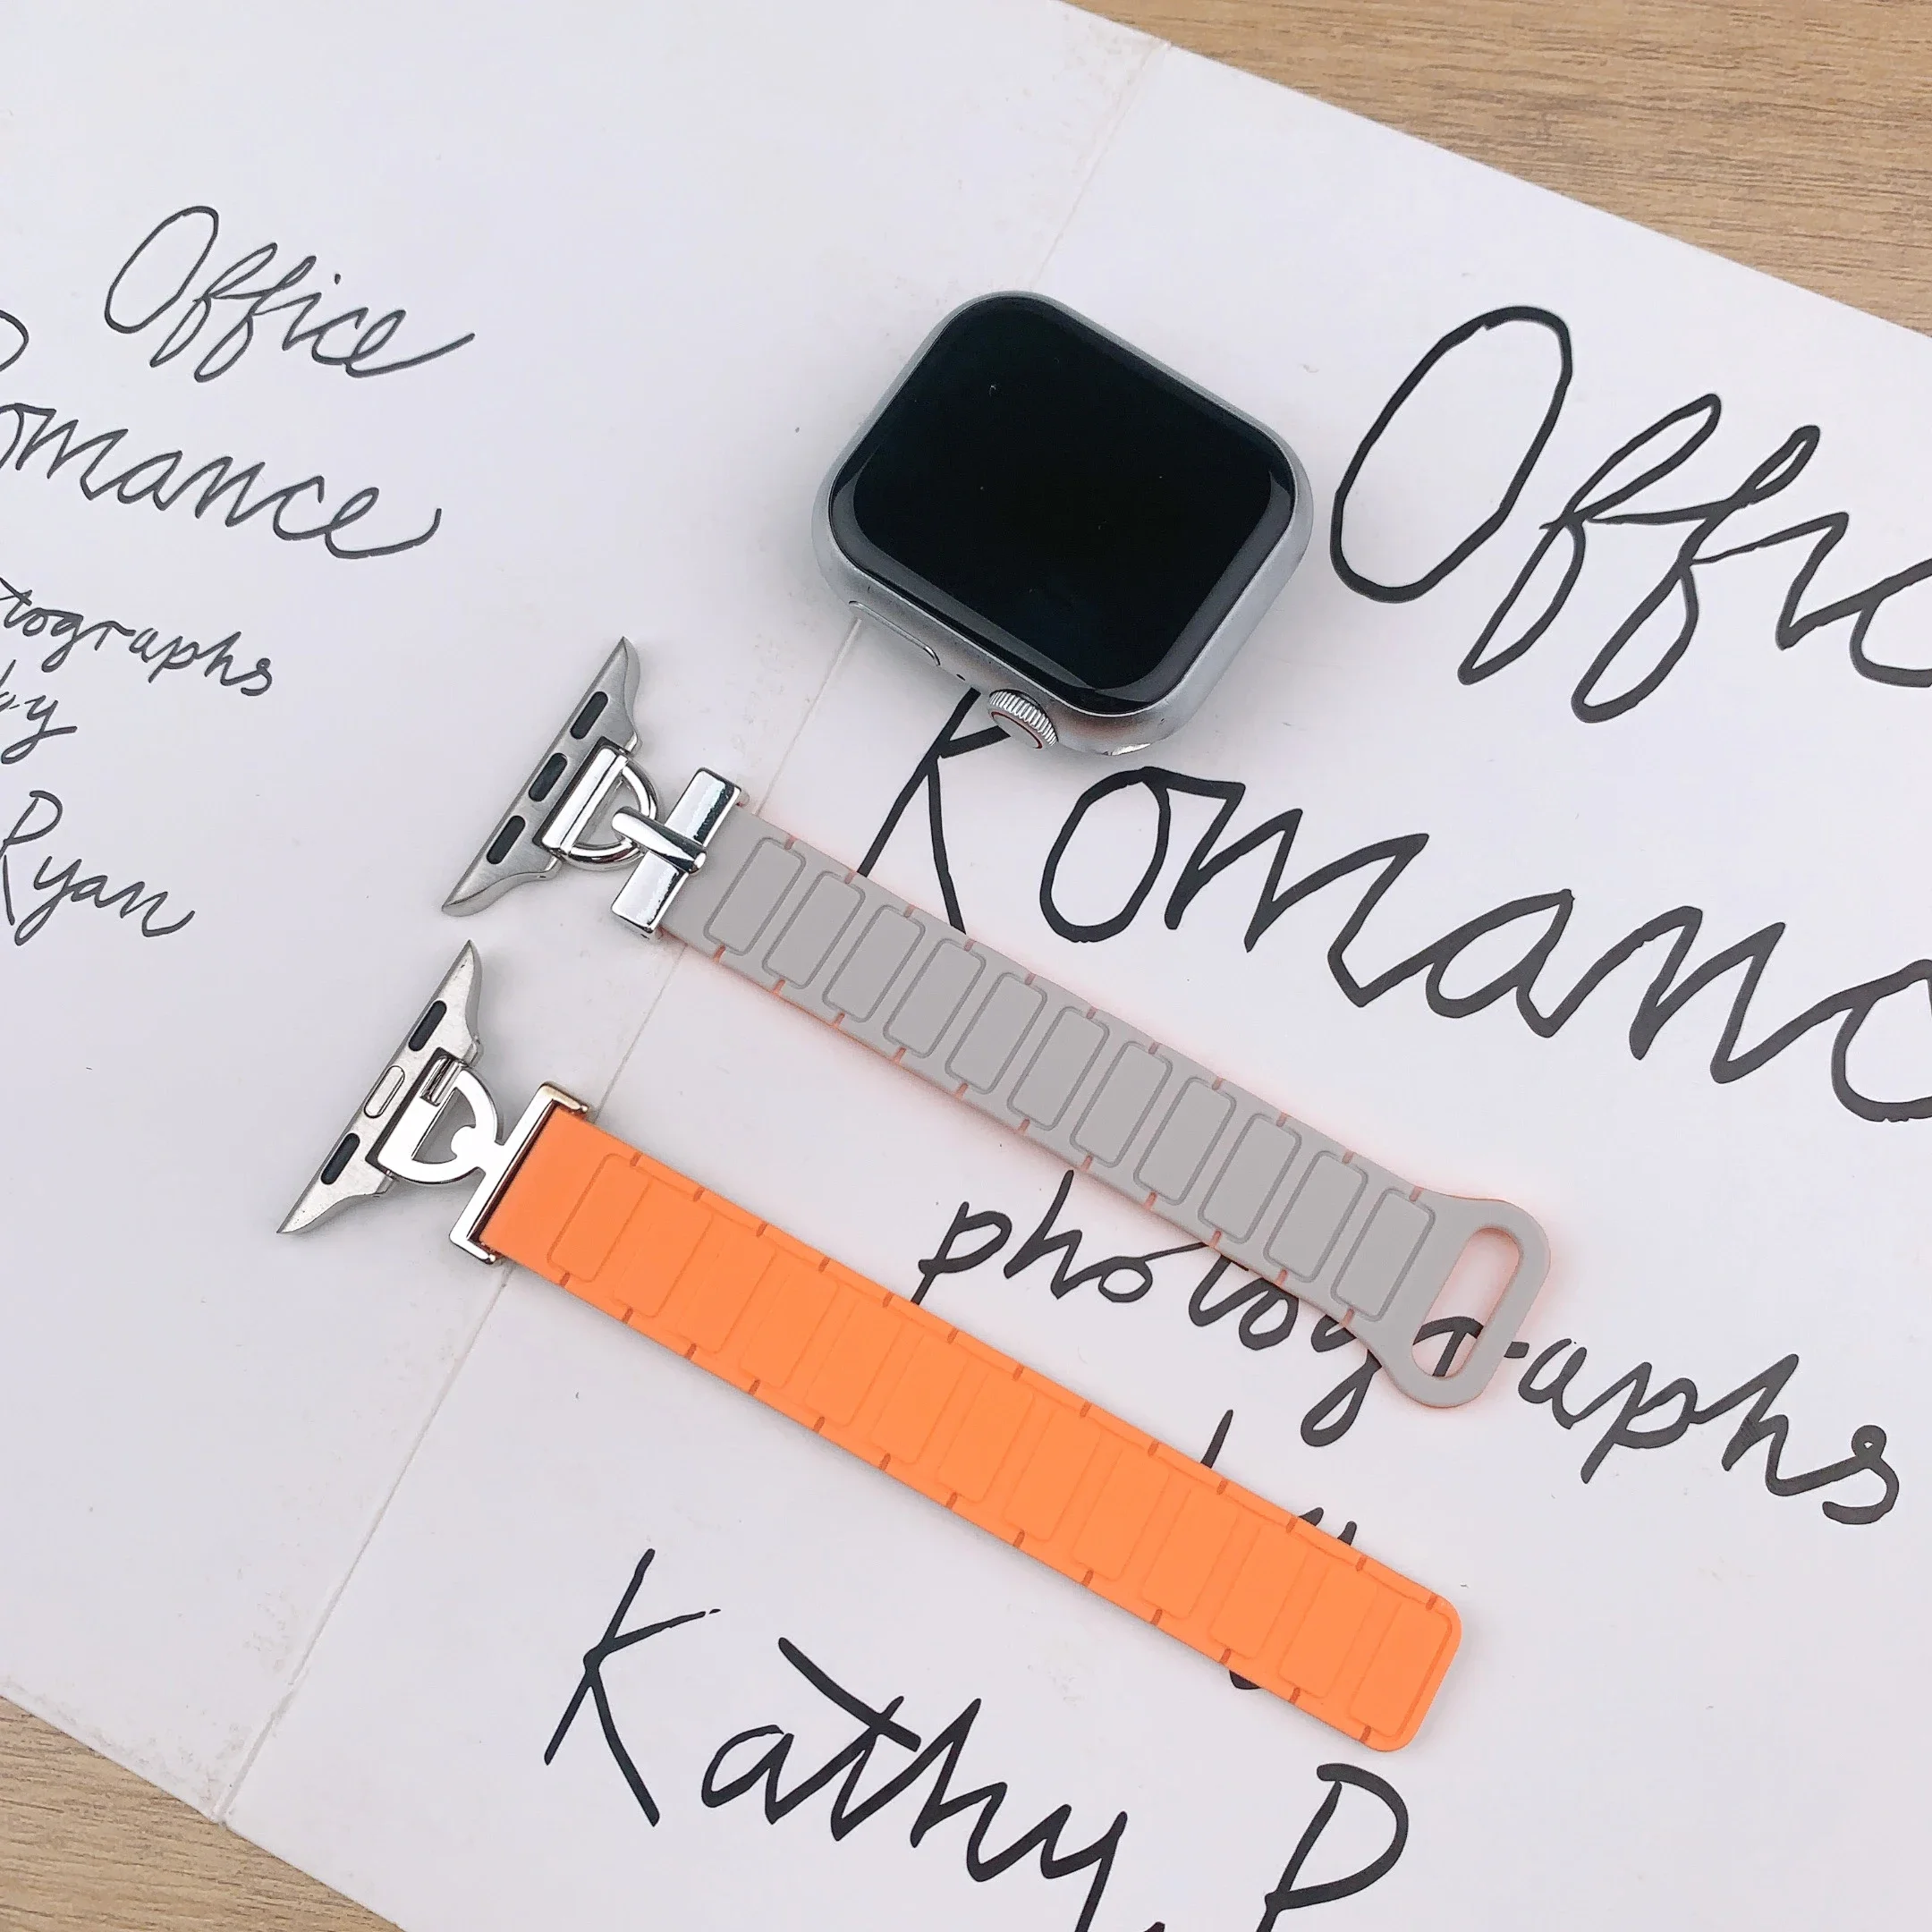 Office
omance
tographs
by
Ryan
Offic
Romanc
photographs
Kathy R